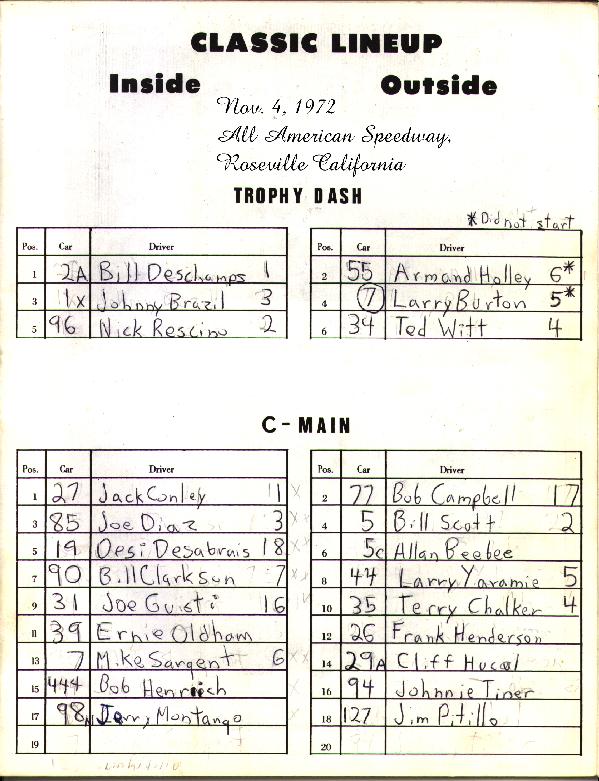 CLASSIC LINEUP
Inside Outside
Nov. 4, 1972
All American Speedway,
Roseville California
TROPHY DASH
*Did not start
Pos. Car Driver Pos. Car Driver
1 2A Bill Deschamps 1 2 55 Armand Holley 6*
3 11x Johnny Brazil 3 4 7 Larry Burton 5*
5 96 Nick Rescino 2 6 34 Ted Witt 4
C-MAIN
Pos. Car Driver Pos. Car Driver
1 27 Jack Conley 11 2 77 Bob Campbell 17
3 85 Joe Diaz 3 4 5 Bill Scott 2
5 19 Desi Desabrais 18 6 5c Allan Beebee
7 90 Bill Clarkson 7 8 44 Larry Yaramie 5
9 31 Joe Gusti 16 10 35 Terry Chalker 4
11 39 Ernie Oldham 12 26 Frank Henderson
13 7 Mike Sargent 6 14 29A Cliff
15 444 Bob Henrich 16 94 Johnnie Tiner
17 98 Jerry Montango 18 127 Jim Pitillo
19 20